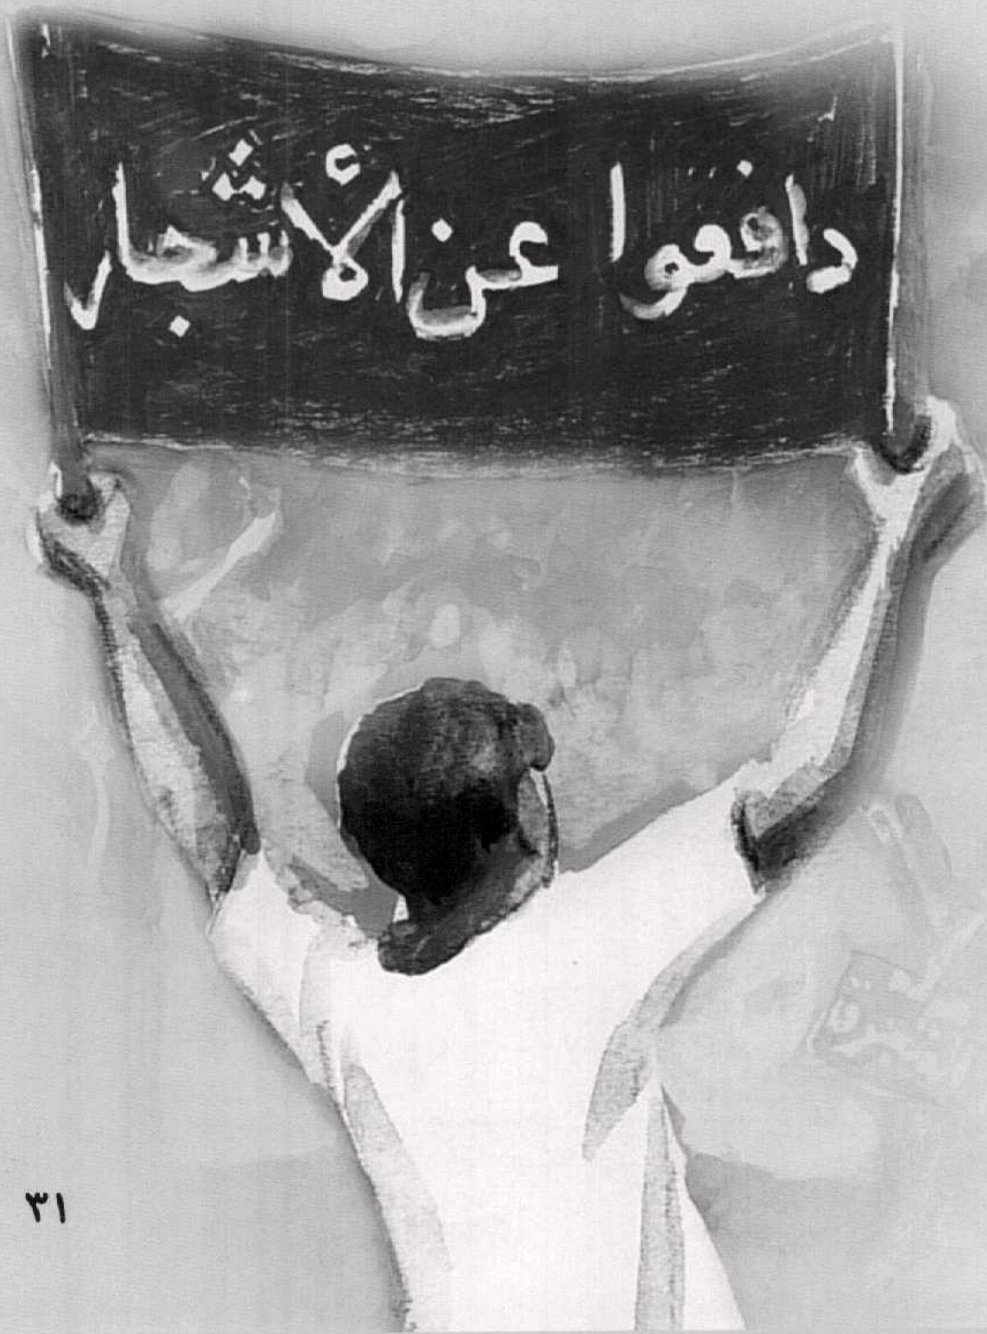 دافعوا عن الأشجار
٣١